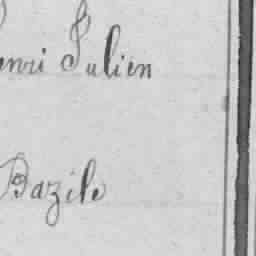 enri Julien
Bazile